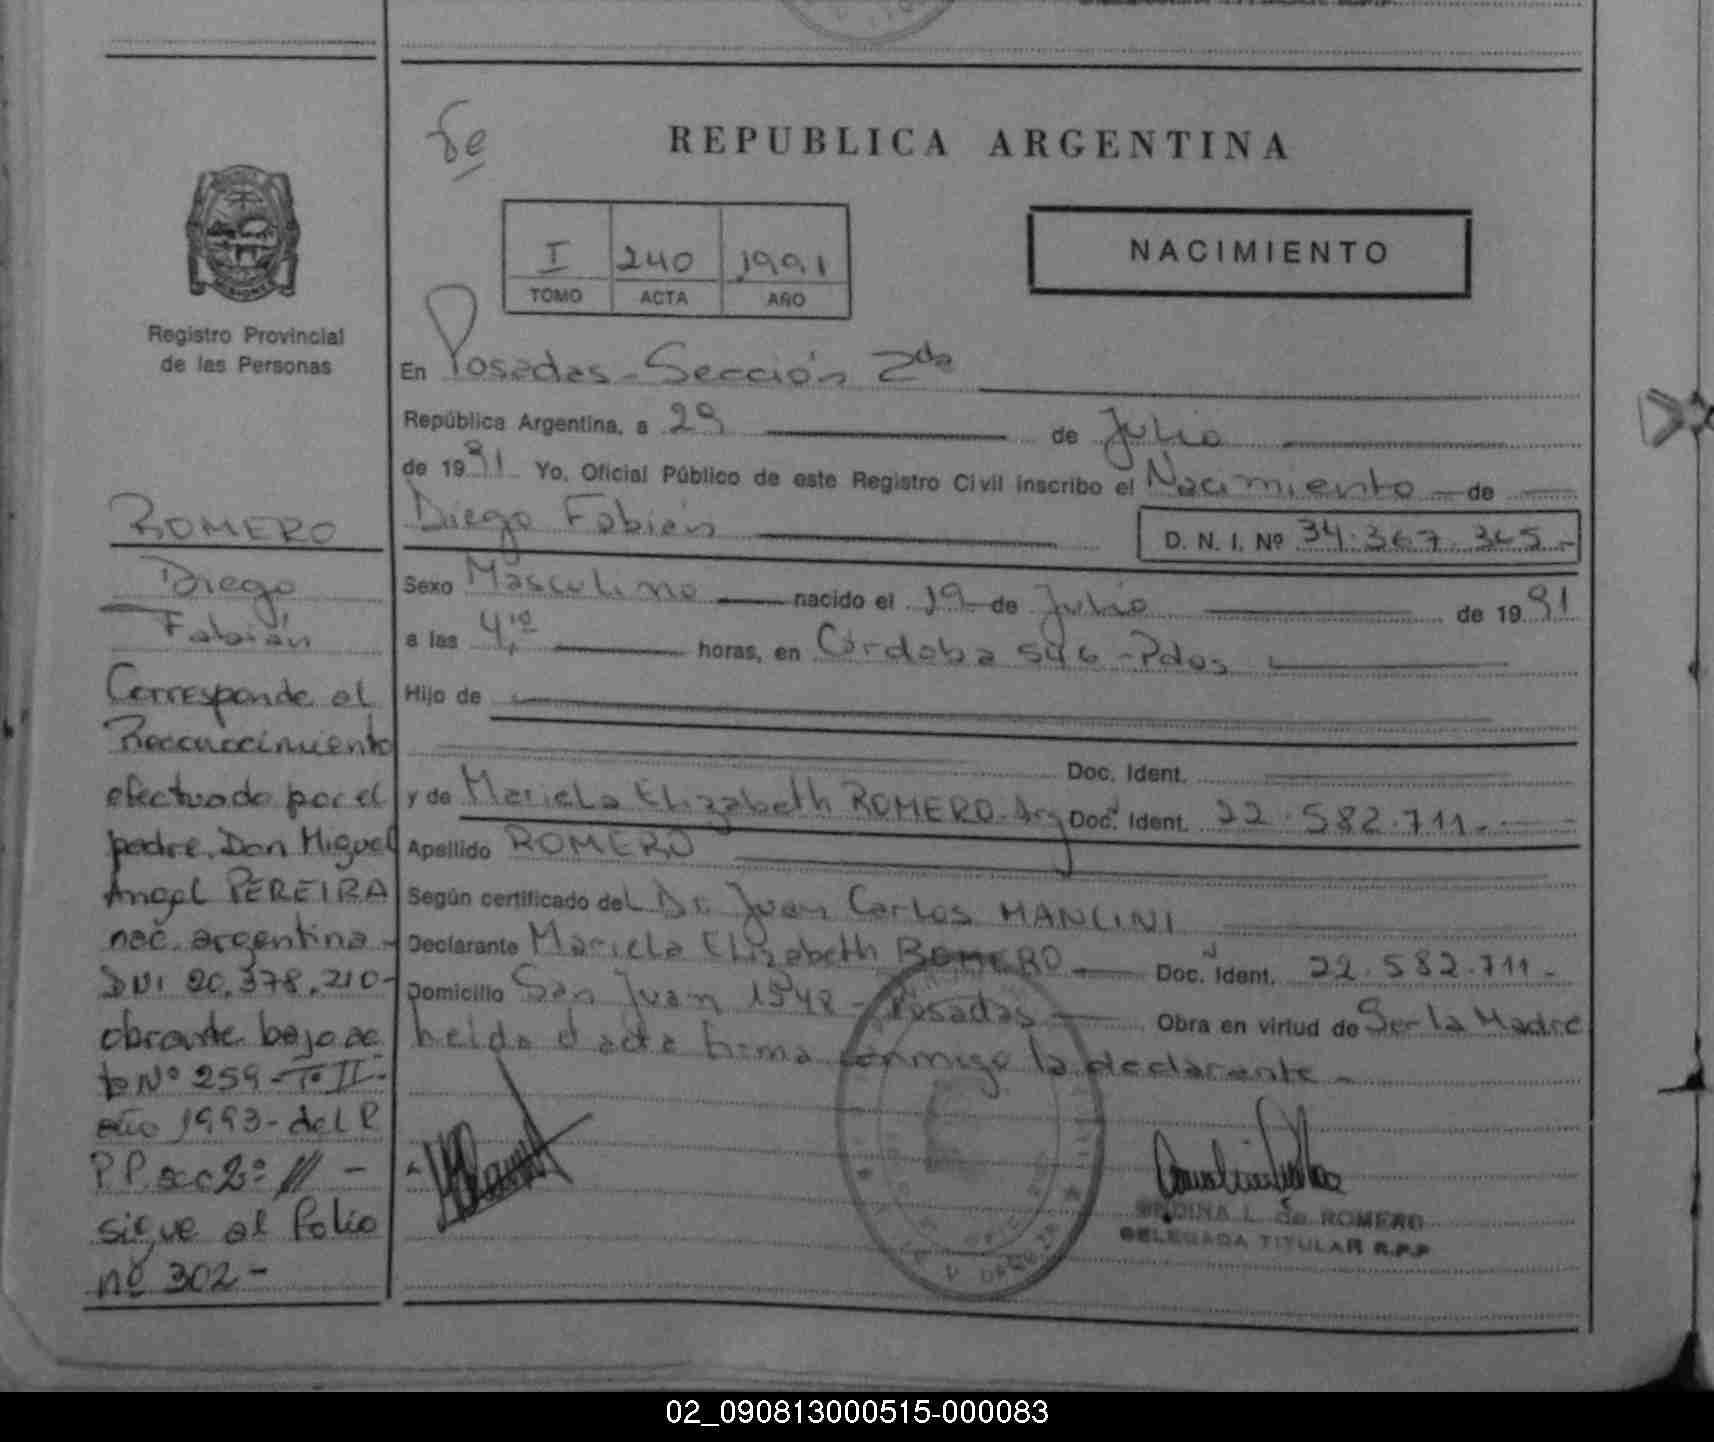 REPUBLICA ARGENTINA
I 240 1991
TOMO ACTA AÑO
NACIMIENTO
Registro Provincial
de las Personas
En Posadas - Sección 2da
República Argentina, a 29 de Julio
de 1991 Yo, Oficial Público de este Registro Civil inscribo el Nacimiento de
Diego Fabián D. N. I. Nº 34.367.365.-
Sexo Masculino nacido el 19 de Julio de 1991
a las 4,10 horas, en Córdoba 546 - Pdas
Hijo de
Doc. Ident.
y de Mariela Elizabeth ROMERO. Arg Doc. Ident. 22.582.711.-
Apellido ROMERO
Según certificado del Dr. Juan Carlos MANCINI
Declarante Mariela Elizabeth ROMERO Doc. Ident. 22.582.711-
Domicilio San Juan 1948 - Posadas Obra en virtud de Ser la Madre
heida el acta firma conmigo la declarante -
L. de ROMERO
DELEGADA TITULAR R.P.P
ROMERO
Diego
Fabián
Corresponde al
Reconocimiento
efectuado por el
padre. Don Miguel
Angel PEREIRA
nac. argentina -
DNI 20.378.210-
obrante bajo ac
ta Nº 259 - Tº II -
año 1993 - del R.
P.P. secc 2ª -
sigue al folio
nº 302 -
02_090813000515-000083